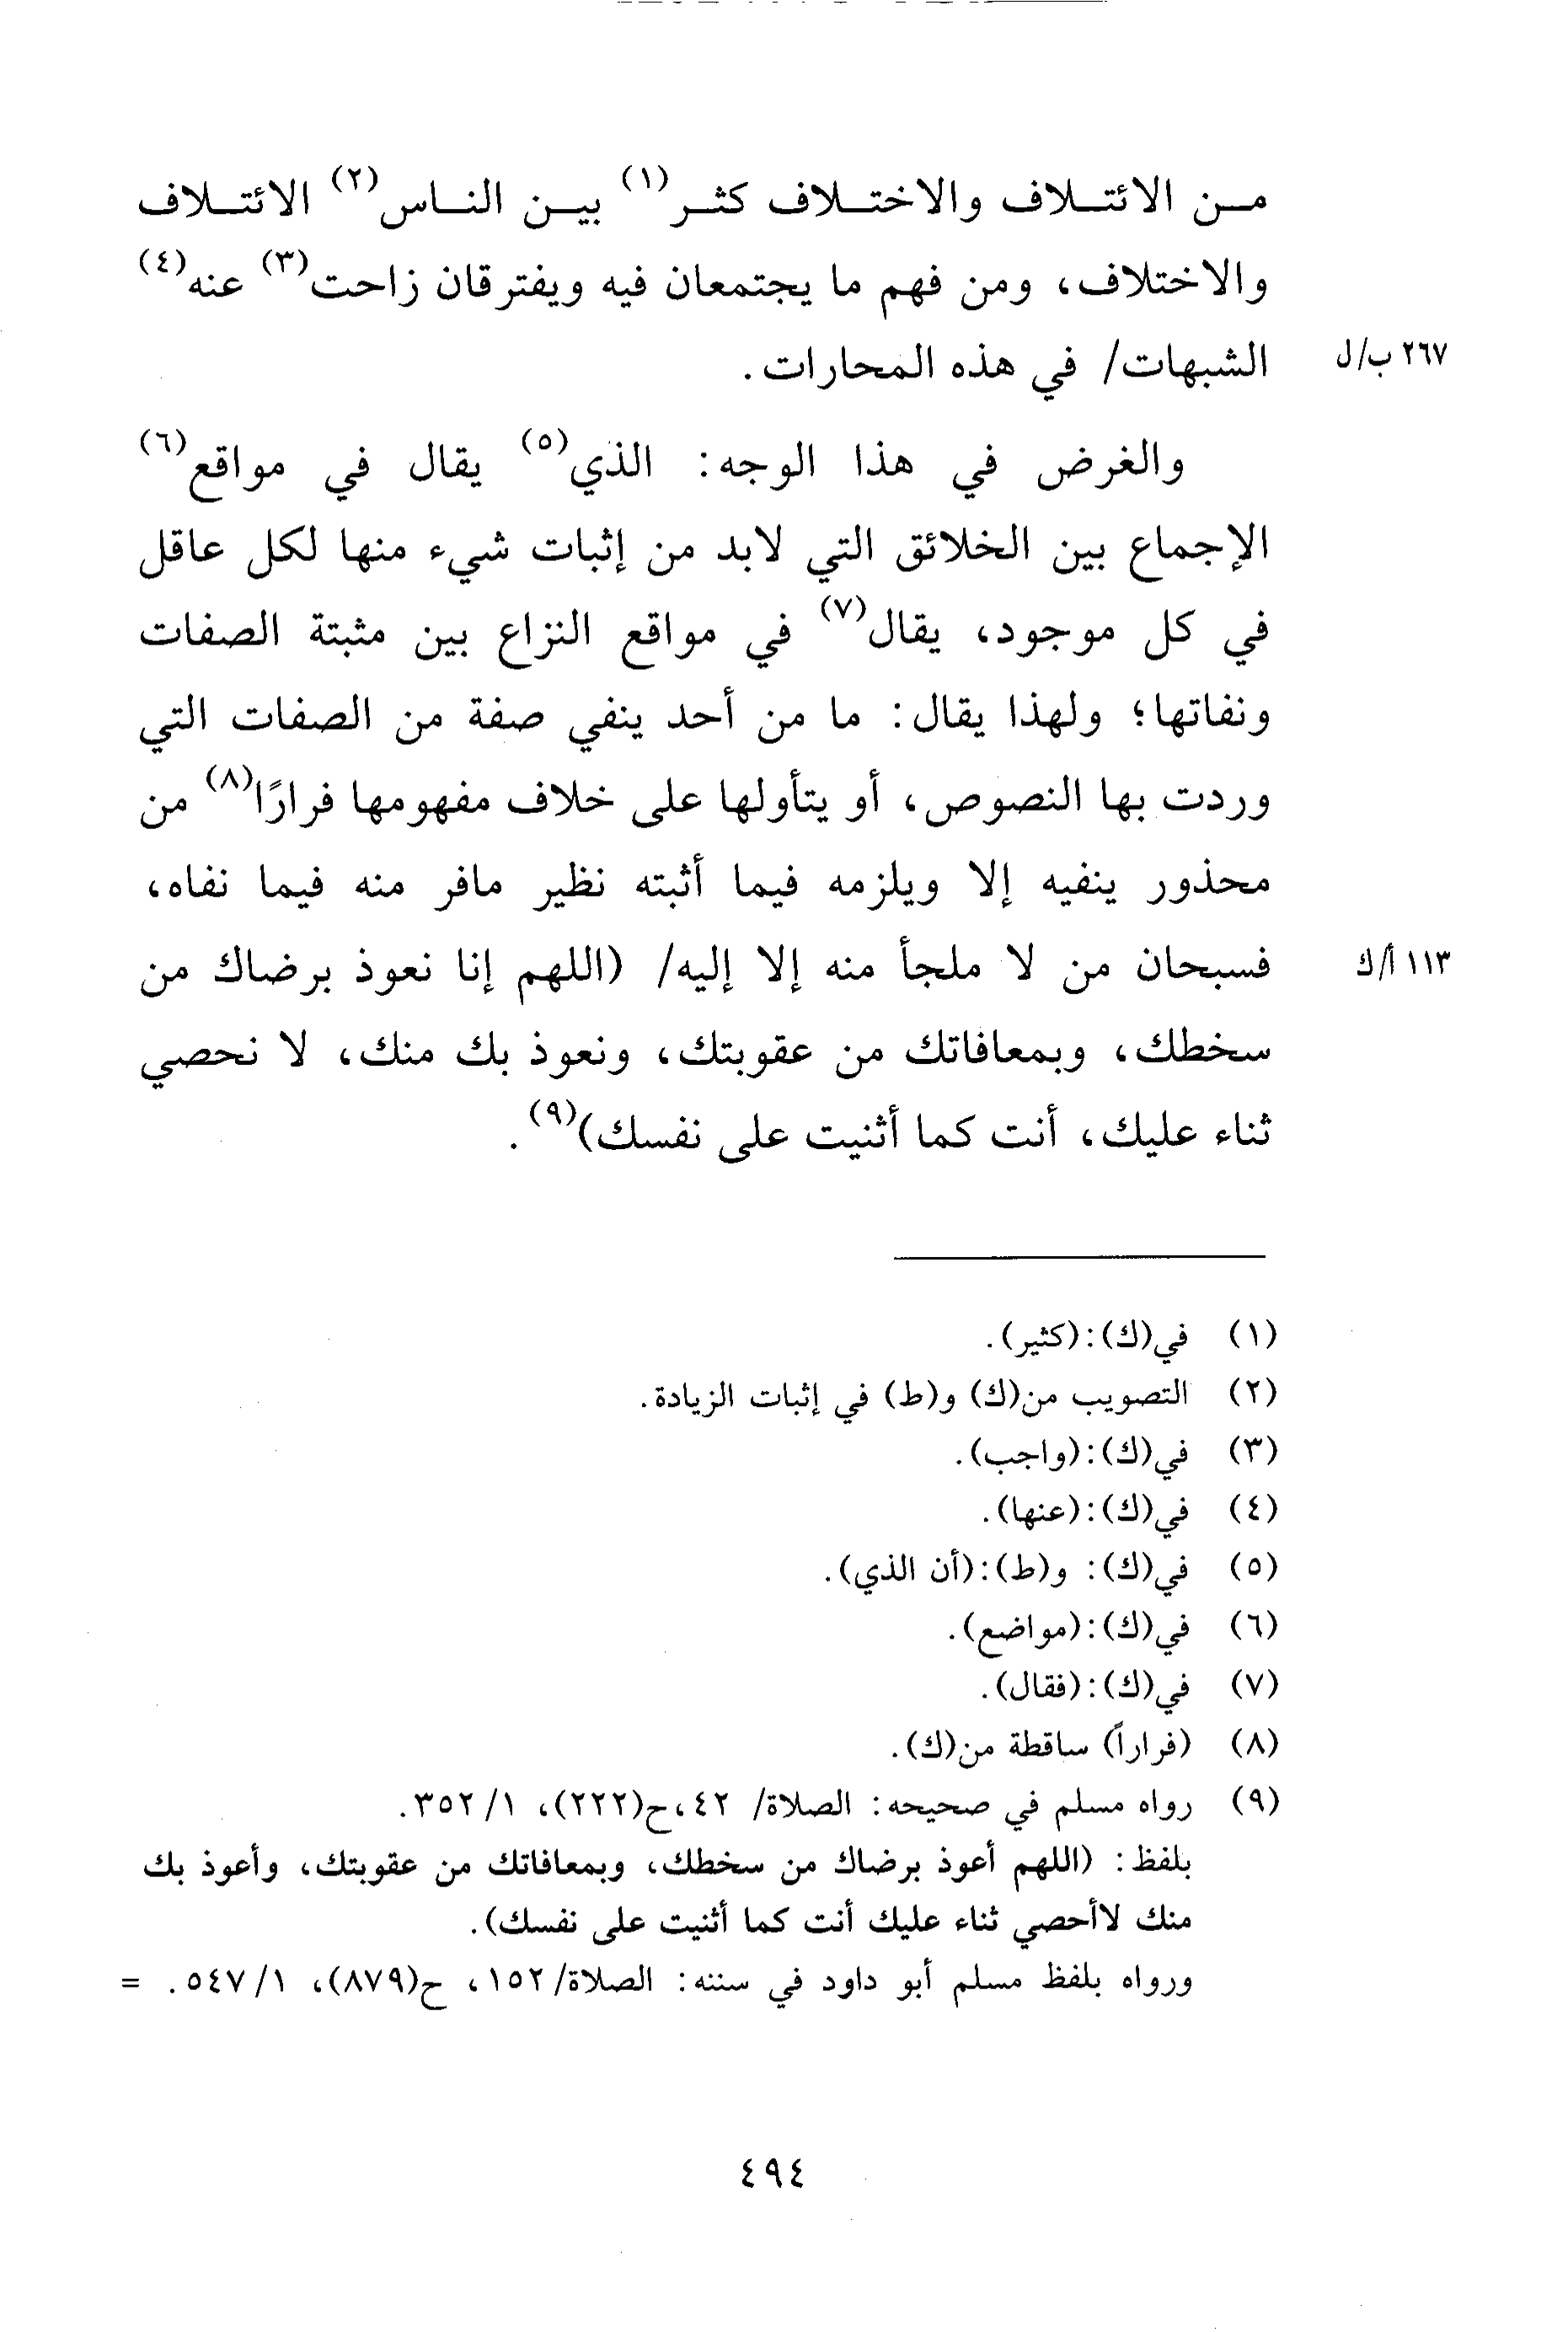 مـن الائتـلاف والاختـلاف كثـر(١) بيـن النـاس(٢) الائتـلاف
والاختلاف، ومن فهم ما يجتمعان فيه ويفترقان زاحت(٣) عنه(٤)
الشبهات/ في هذه المحارات.
٢٦٧ ب/ل
والغرض في هذا الوجه: الذي(٥) يقال في مواقع(٦)
الإجماع بين الخلائق التي لابد من إثبات شيء منها لكل عاقل
في كل موجود، يقال(٧) في مواقع النزاع بين مثبتة الصفات
ونفاتها؛ ولهذا يقال: ما من أحد ينفي صفة من الصفات التي
وردت بها النصوص، أو يتأولها على خلاف مفهومها فرارًا(٨) من
محذور ينفيه إلا ويلزمه فيما أثبته نظير مافر منه فيما نفاه،
فسبحان من لا ملجأ منه إلا إليه/ (اللهم إنا نعوذ برضاك من
١١٣ أ/ك
سخطك، وبمعافاتك من عقوبتك، ونعوذ بك منك، لا نحصي
ثناء عليك، أنت كما أثنيت على نفسك)(٩).
(١) في(ك):(كثير).
(٢) التصويب من(ك) و(ط) في إثبات الزيادة.
(٣) في(ك):(واجب).
(٤) في(ك):(عنها).
(٥) في(ك): و(ط):(أن الذي).
(٦) في(ك):(مواضع).
(٧) في(ك):(فقال).
(٨) (فراراً) ساقطة من(ك).
(٩) رواه مسلم في صحيحه: الصلاة/ ٤٢،ح(٢٢٢)، ١/ ٣٥٢.
بلفظ: (اللهم أعوذ برضاك من سخطك، وبمعافاتك من عقوبتك، وأعوذ بك
منك لاأحصي ثناء عليك أنت كما أثنيت على نفسك).
ورواه بلفظ مسلم أبو داود في سننه: الصلاة/١٥٢، ح(٨٧٩)، ١/ ٥٤٧. =
٤٩٤